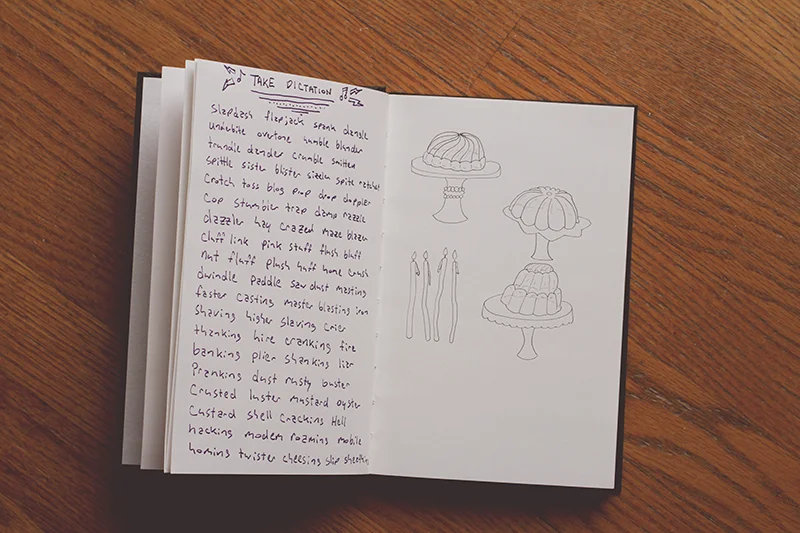 TAKE DICTATION
Slapdash flapjack spank dangle
underbite overtone humble blunder
trundle dander crumble smitten
spittle sister blister sizzle spite ratchet
Crotch toss blog prop drop doppler
Cop stumbler trap damp razzle
dazzler hay crazed maze blaze
cluff link pink stuff flush bluff
nut fluff plush huff home crush
dwindle paddle sawdust masting
faster casting master blasting iron
shaving higher slaving crier
thanking hire cranking fire
banking plier shanking liar
Pranking dust rusty buster
Crusted luster mustard oyster
Custard shell cracking Hell
hacking modem roaming mobile
homing twister cheesing slip